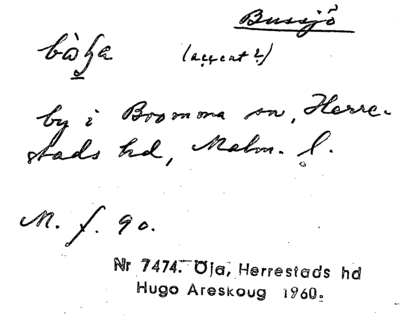 Bussjö
bòḥa (accent 2)
by i Bromma sn, Herre-
stads hd, Malm. l.
M. f. 90.
Nr 7474. Öja, Herrestads hd
Hugo Areskoug 1960.